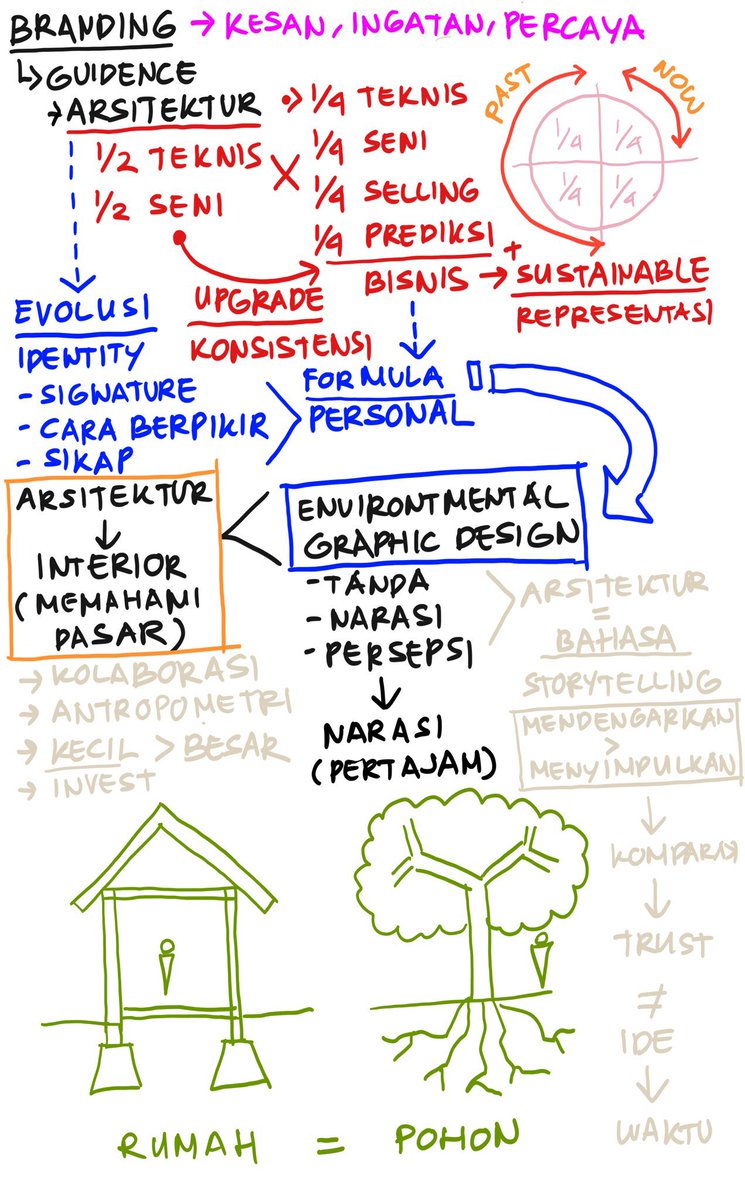 BRANDING → KESAN, INGATAN, PERCAYA
↳ GUIDENCE
→ ARSITEKTUR
1/2 TEKNIS
1/2 SENI
×
→ 1/4 TEKNIS
1/4 SENI
1/4 SELLING
1/4 PREDIKSI
BISNIS → + SUSTAINABLE
REPRESENTASI
PAST
NOW
1/4 1/4
1/4 1/4
UPGRADE
KONSISTENSI
EVOLUSI
IDENTITY
- SIGNATURE
- CARA BERPIKIR
- SIKAP
FORMULA
PERSONAL
ARSITEKTUR
↓
INTERIOR
(MEMAHAMI
DASAR)
→ KOLABORASI
→ ANTROPOMETRI
→ KECIL > BESAR
→ INVEST
ENVIRONTMENTAL
GRAPHIC DESIGN
- TANDA
- NARASI
- PERSEPSI
↓
NARASI
(PERTAJAM)
ARSITEKTUR
=
BAHASA
STORYTELLING
MENDENGARKAN
>
MENYIMPULKAN
↓
KOMPARASI
↓
TRUST
≠
IDE
↓
WAKTU
RUMAH = POHON